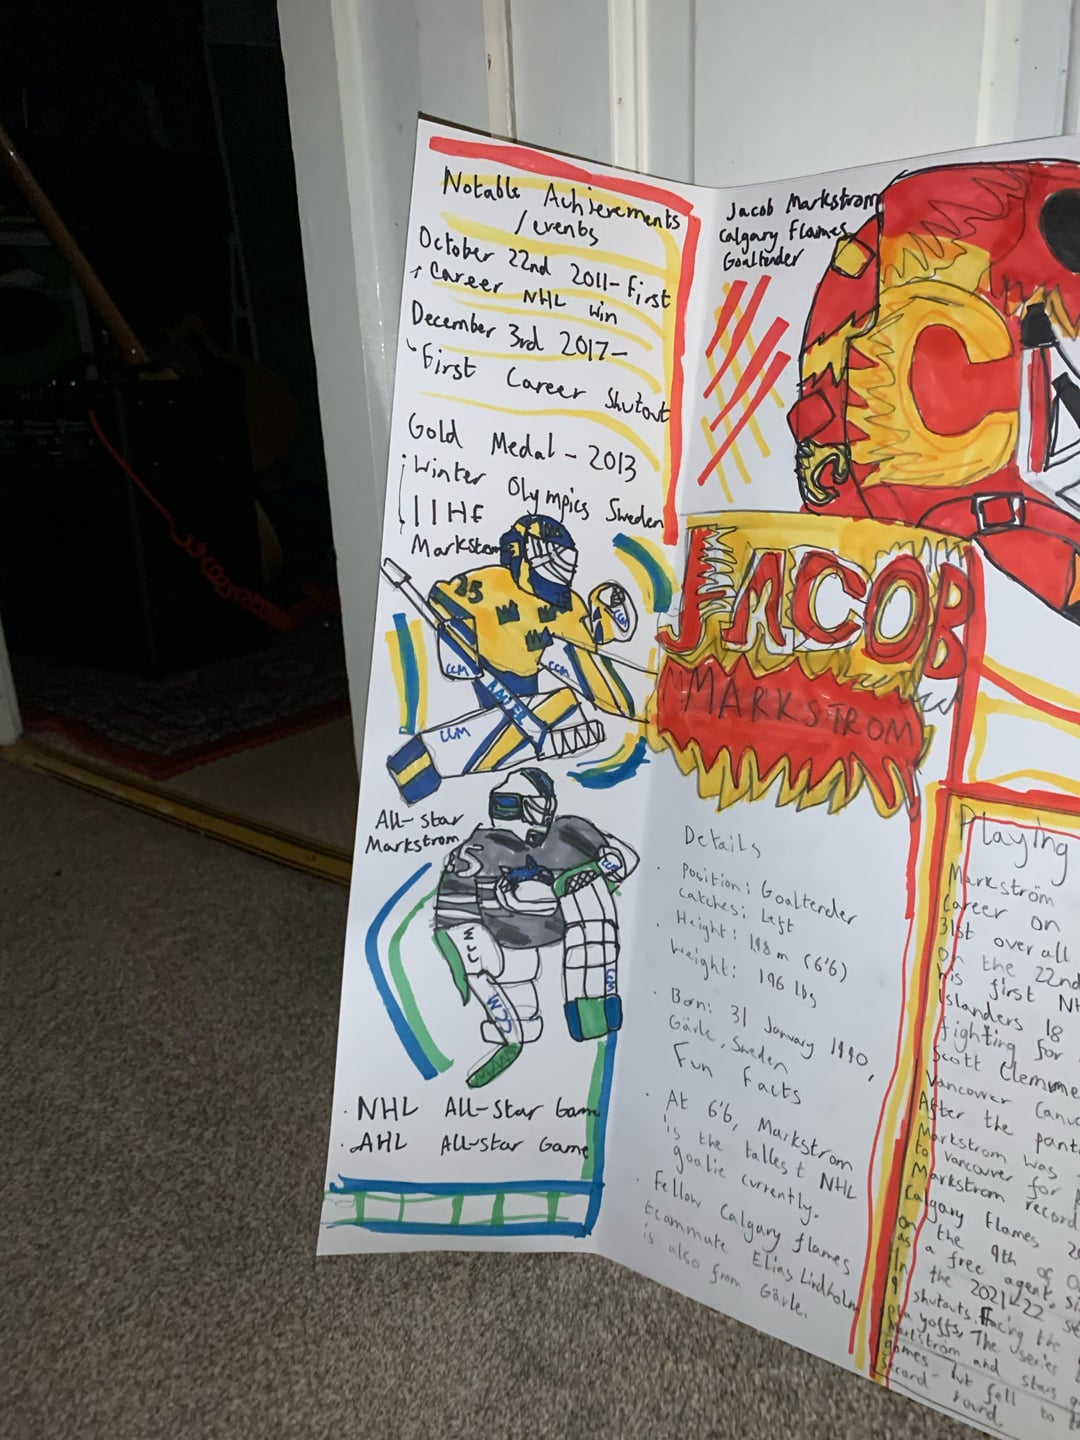 Notable Achievements
/events
October 22nd 2011- First
Career NHL win
December 3rd 2017-
First Career Shutout
Gold Medal - 2013
Winter Olympics Sweden
IIHF
Markstrom
25
25
CCM
CCM
CCM
All-star
Markstrom
CCM
CCM
NHL All-Star Game
AHL All-star Game
Jacob Markstrom
Calgary Flames
Goaltender
C
JACOB
MARKSTROM
Details
Position: Goaltender
Catches: Left
Height: 198m (6'6)
Weight: 196 lbs
Born: 31 January 1990,
Gävle, Sweden
Fun Facts
At 6'6, Markstrom
is the tallest NHL
goalie currently.
Fellow Calgary flames
teammate Elias Lindholm
is also from Gävle.
Playing
Markström
career on
31st overall
on the 22nd
his first
Islanders 18
fighting for
Scott
Vancouver
After the
Markstrom was
to Vancouver for
Markstrom
Calgary Flames
on the 9th of
as a free agent.
In the 2021-22
9 shutouts. Facing the
playoffs, The series
Markstrom and stars
games but fell to
second round.